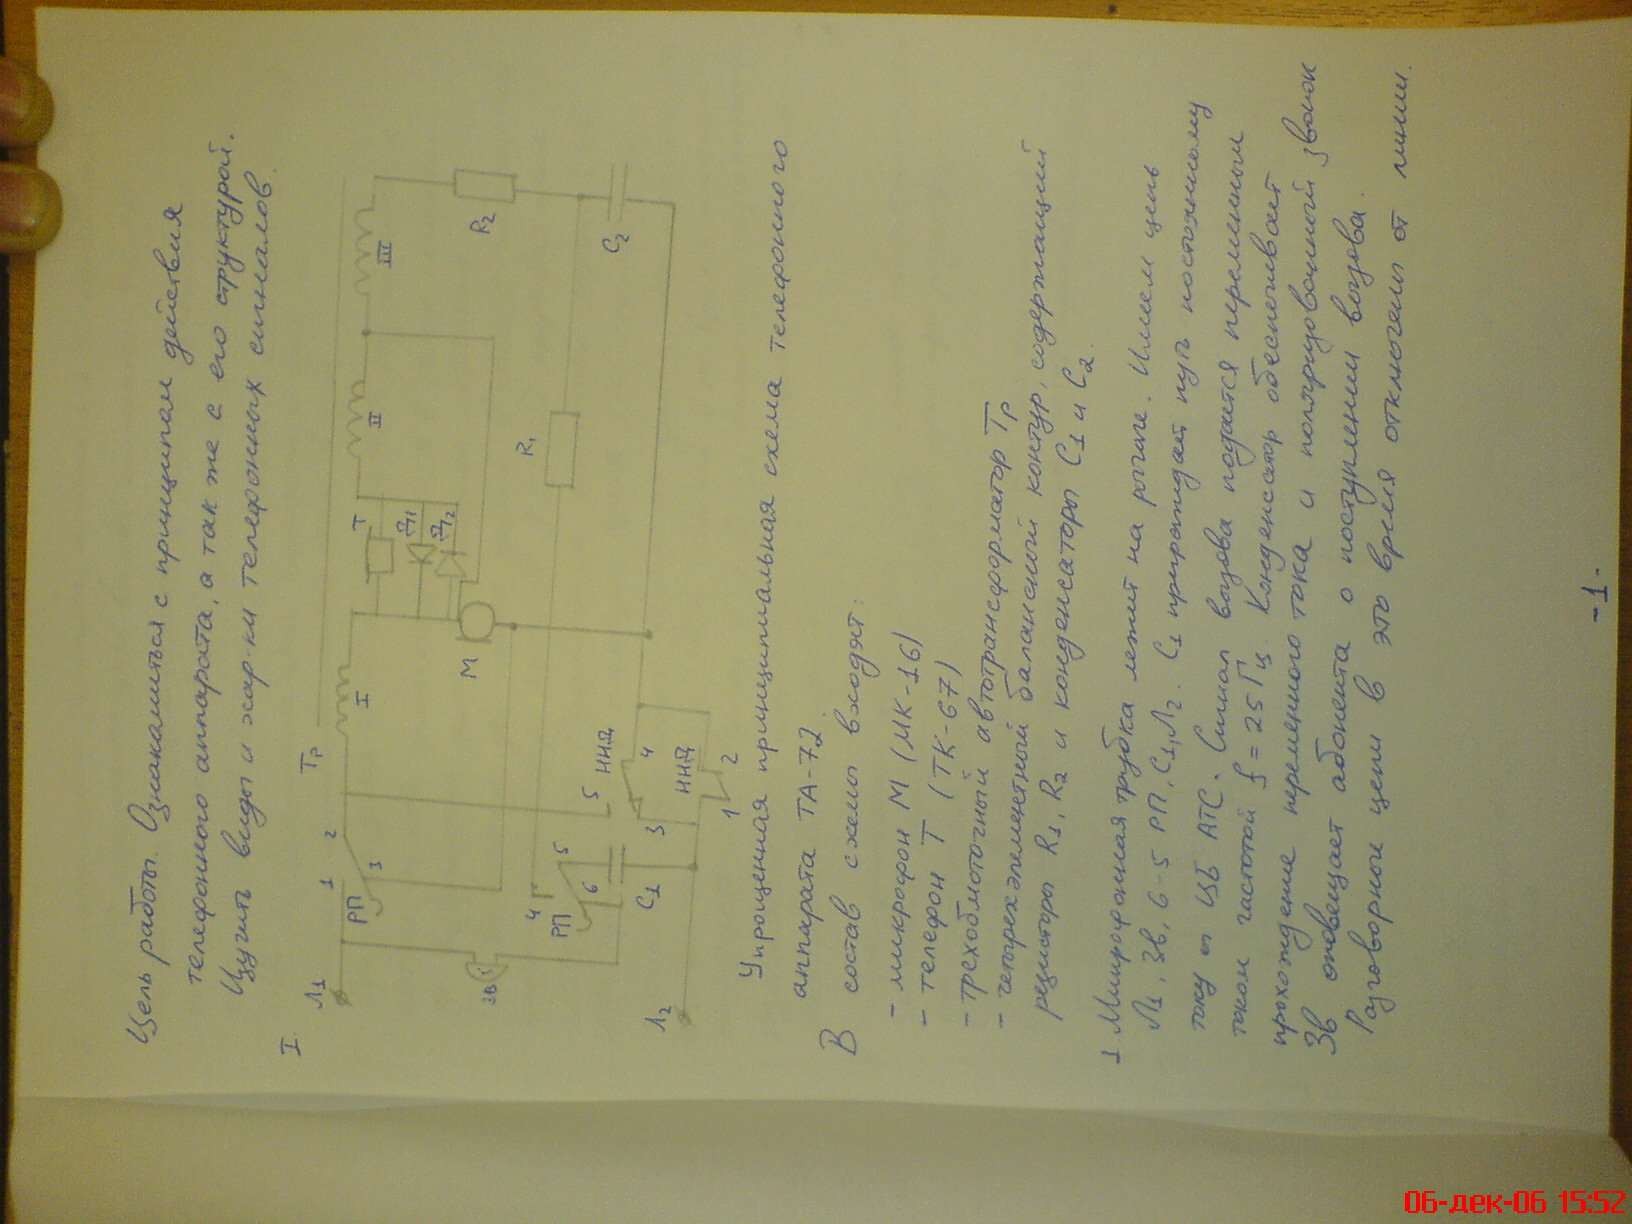 Цель работы. Ознакомиться с принципом действия
телефонного аппарата, а так же с его структурой.
Изучить виды и хар-ки телефонных сигналов
I
Л1
РП
1
2
3
Тр
I
Т
Д1
Д2
II
III
М
R1
R2
C2
Зв
4
РП
5
6
C1
5
ННД
3
4
ННД
1
2
Л2
Упрощенная принципиальная схема телефонного
аппарата ТА-72.
В состав схемы входят:
- микрофон М (МК-16)
- телефон Т (ТК-67)
- трехобмоточный автотрансформатор Тр
- четырехэлементный балансный контур, содержащий
резисторы R1, R2 и конденсаторы C1 и C2.
1. Микрофонная трубка лежит на рычаге. Имеем цепь
Л1, Зв, 6-5 РП, C1, Л2. C1 преграждает путь постоянному
току от ЦБ АТС. Сигнал вызова подается переменным
током частотой f = 25 Гц. Конденсатор обеспечивает
прохождение переменного тока и поляризованный звонок
Зв оповещает абонента о поступлении вызова.
Разговорной цепи в это время отключены от линии.
-1-
06-дек-06 15:52